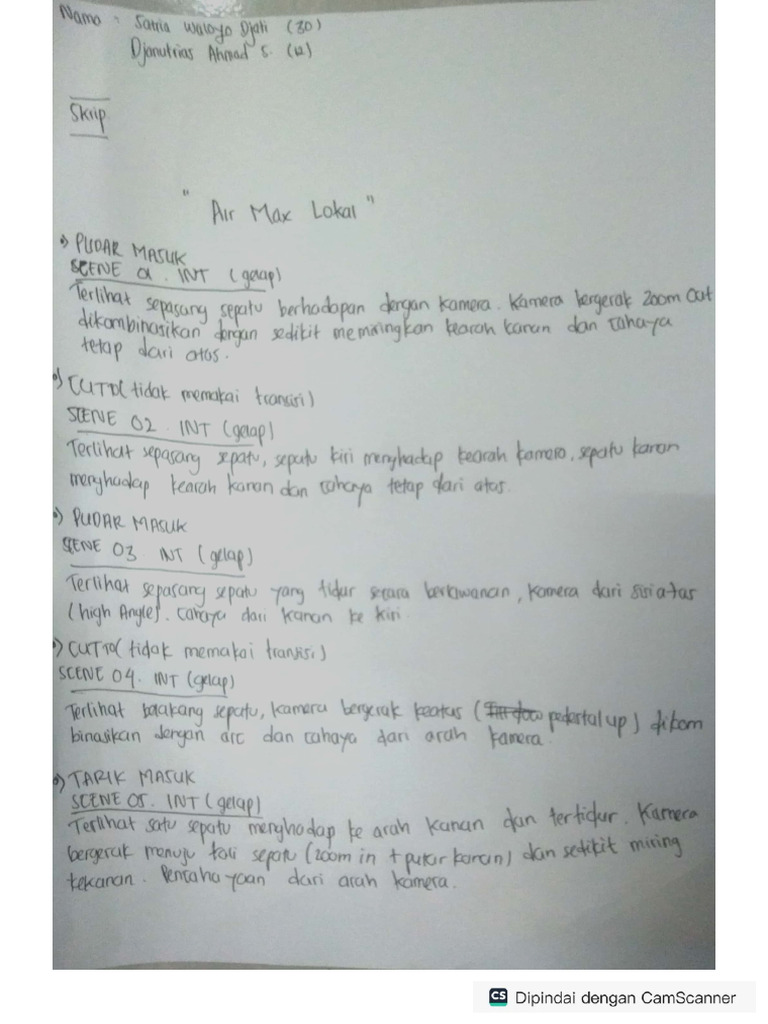 Nama : Satria Waloyo Djati (30)
Djanutrias Ahmad S. (12)
Skrip
" Air Max Lokal "
•) PUDAR MASUK
SCENE 01. INT (gelap)
Terlihat sepasang sepatu berhadapan dengan kamera. Kamera bergerak Zoom Out
dikombinasikan dengan sedikit memiringkan kearah kanan dan cahaya
tetap dari atas.
•) CUT TO (tidak memakai transisi)
SCENE 02. INT (gelap)
Terlihat sepasang sepatu, sepatu kiri menghadap kearah kamera, sepatu kanan
menghadap kearah kanan dan cahaya tetap dari atas.
•) PUDAR MASUK
SCENE 03 INT (gelap)
Terlihat sepasang sepatu yang tidur secara berlawanan, kamera dari sisi atas
(high Angle). Cahaya dari kanan ke kiri
•) CUT TO (tidak memakai transisi)
SCENE 04. INT (gelap)
Terlihat belakang sepatu, kamera bergerak keatas (pedestal up) dikom
binasikan dengan arc dan cahaya dari arah kamera.
•) TARIK MASUK
SCENE 05. INT (gelap)
Terlihat satu sepatu menghadap ke arah kanan dan tertidur. Kamera
bergerak menuju tali sepatu (zoom in + putar kanan) dan sedikit miring
kekanan. Pencahayaan dari arah kamera.
CS Dipindai dengan CamScanner